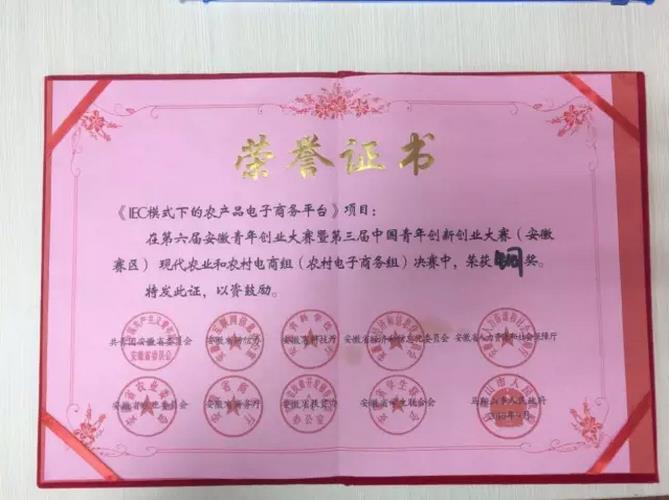 荣誉证书
《IEC模式下的农产品电子商务平台》项目：
在第六届安徽青年创业大赛暨第三届中国青年创新创业大赛（安徽
赛区）现代农业和农村电商组（农村电子商务组）决赛中，荣获铜奖。
特发此证，以资鼓励。
共青团安徽省委员会 安徽省网信办 安徽省科技厅 安徽省经济和信息化委员会 安徽省人力资源和社会保障厅
安徽省农业委员会 安徽省商务厅 安徽省扶贫办 安徽省学生联合会 马鞍山市人民政府